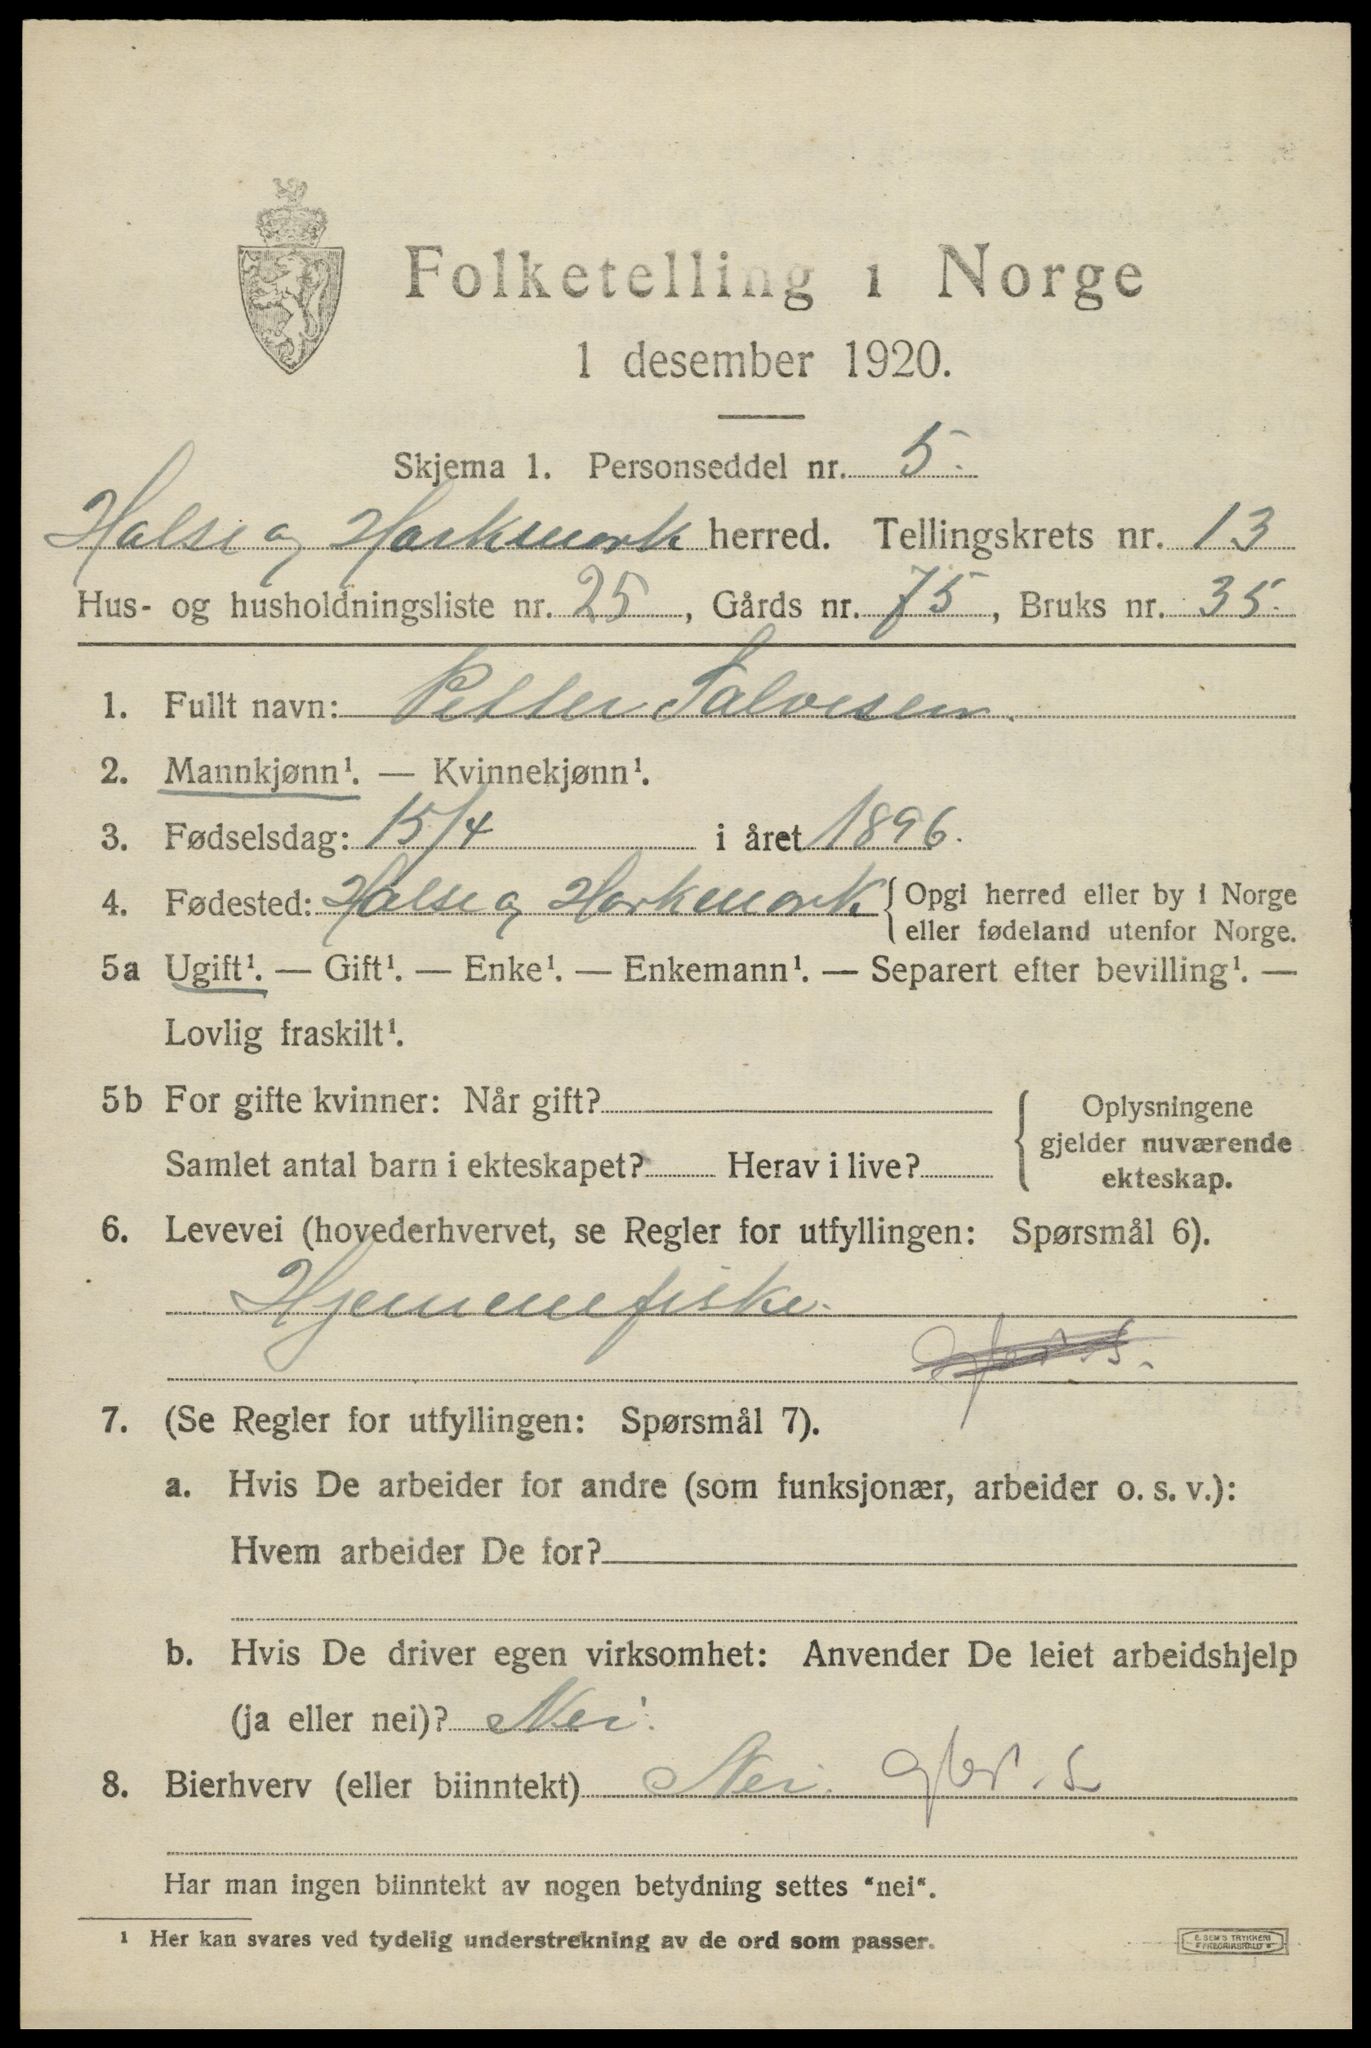 Folketelling i Norge
1 desember 1920.
Skjema 1. Personseddel nr. 5.
Halse og Harkmark herred. Tellingskrets nr. 13
Hus- og husholdningsliste nr. 25, Gårds nr. 75, Bruks nr. 35.
1. Fullt navn: Petter Salvesen.
2. Mannkjønn¹. — Kvinnekjønn¹.
3. Fødselsdag: 15/4 i året 1896.
4. Fødested: Halse og Harkmark { Opgi herred eller by i Norge
eller fødeland utenfor Norge.
5a Ugift¹. — Gift¹. — Enke¹. — Enkemann¹. — Separert efter bevilling¹. —
Lovlig fraskilt¹.
5b For gifte kvinner: Når gift?
Samlet antal barn i ekteskapet? Herav i live?
{ Oplysningene
gjelder nuværende
ekteskap.
6. Levevei (hovederhvervet, se Regler for utfyllingen: Spørsmål 6).
Hjemmefiske.
7. (Se Regler for utfyllingen: Spørsmål 7).
a. Hvis De arbeider for andre (som funksjonær, arbeider o. s. v.):
Hvem arbeider De for?
b. Hvis De driver egen virksomhet: Anvender De leiet arbeidshjelp
(ja eller nei)? Nei.
8. Bierhverv (eller biinntekt) Nei.
Har man ingen biinntekt av nogen betydning settes "nei".
¹ Her kan svares ved tydelig understrekning av de ord som passer.
E SEM'S TRYKKERI
FREDRIKSHALD